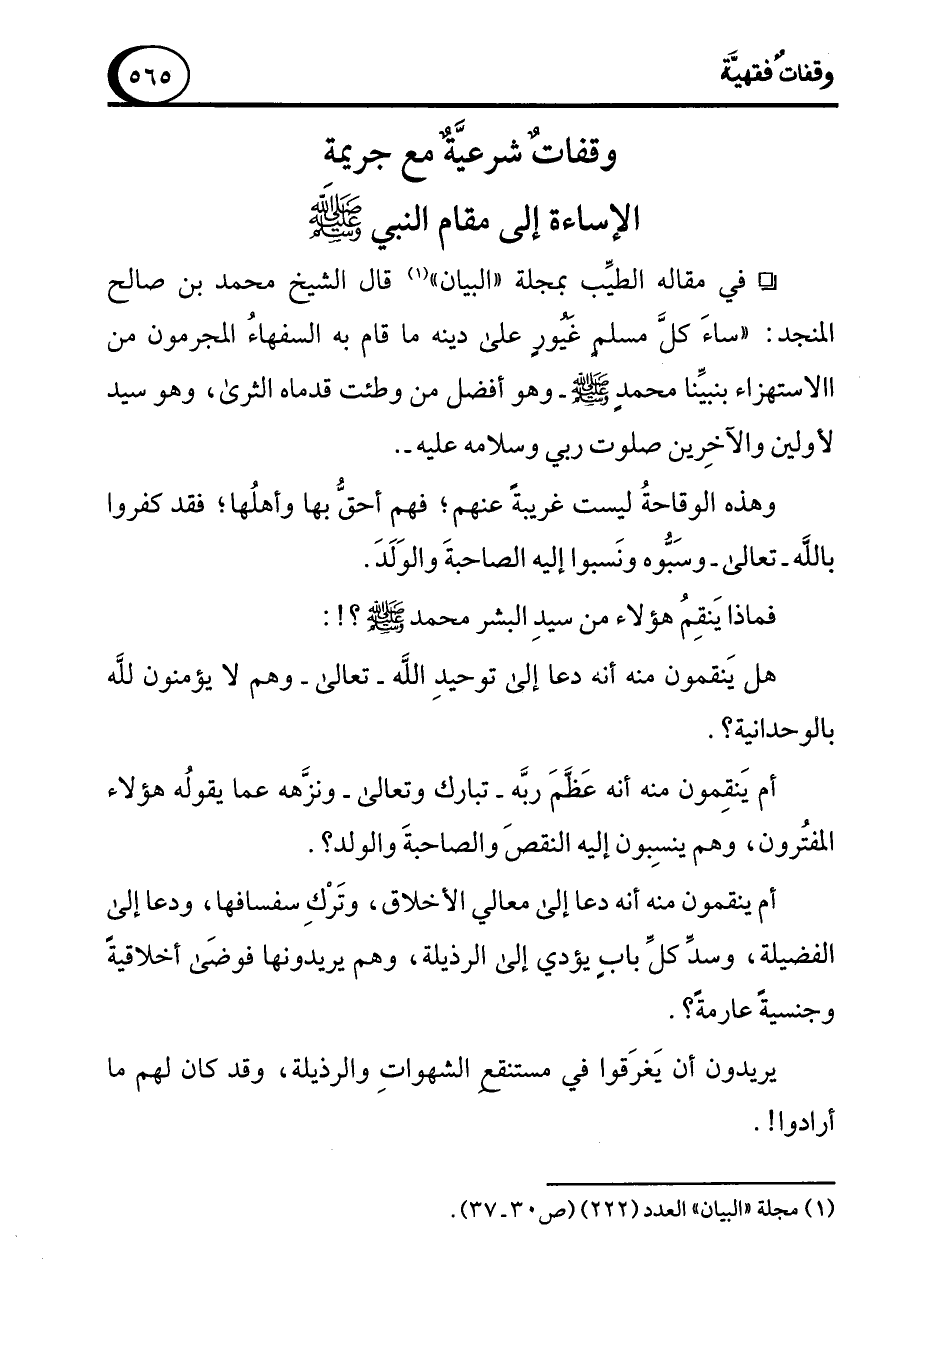 وقفاتٌ فقهيَّة
٥٦٥
وقفاتٌ شرعيَّةٌ مع جريمة
الإساءة إلى مقام النبي ﷺ
❏ في مقاله الطيِّب بمجلة «البيان»(١) قال الشيخ محمد بن صالح
المنجد: «ساءَ كلَّ مسلمٍ غَيُورٍ على دينه ما قام به السفهاءُ المجرمون من
االاستهزاء بنبيِّنا محمدٍ ﷺ ـ وهو أفضل من وطئت قدماه الثرى، وهو سيد
لأولين والآخِرين صلوت ربي وسلامه عليه ـ..
وهذه الوقاحةُ ليست غريبةً عنهم؛ فهم أحقُّ بها وأهلُها؛ فقد كفروا
باللَّه ـ تعالى ـ وسبُّوه ونَسبوا إليه الصاحبةَ والوَلَدَ.
فماذا يَنقِمُ هؤلاء من سيدِ البشر محمد ﷺ ؟!:
هل يَنقمون منه أنه دعا إلى توحيدِ اللَّه ـ تعالى ـ وهم لا يؤمنون للَّه
بالوحدانية؟ .
أم يَنقِمون منه أنه عَظَّمَ ربَّه ـ تبارك وتعالى ـ ونزَّهه عما يقولُه هؤلاء
المفتُرون، وهم ينسِبون إليه النقصَ والصاحبةَ والولد؟ .
أم ينقمون منه أنه دعا إلى معالي الأخلاق، وتَرْكِ سفسافها، ودعا إلى
الفضيلة، وسدِّ كلِّ بابٍ يؤدي إلى الرذيلة، وهم يريدونها فوضَى أخلاقيةً
وجنسيةً عارمةً؟ .
يريدون أن يَغرَقوا في مستنقعِ الشهواتِ والرذيلة، وقد كان لهم ما
أرادوا! .
(١) مجلة «البيان» العدد (٢٢٢) (ص٣٠ـ٣٧).